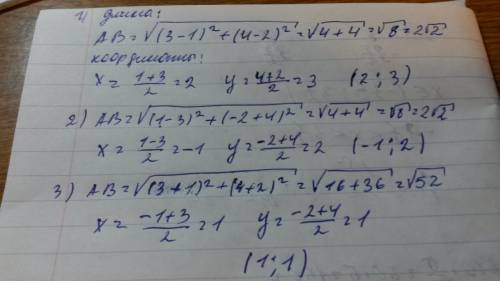 1) длина:
AB=√((3-1)²+(4-2)²)=√(4+4)=√8=2√2
координаты:
x=(1+3)/2=2 y=(4+2)/2=3 (2;3)
2) AB=√((1-3)²+(-2+4)²)=√(4+4)=√8=2√2
x=(1-3)/2=-1 y=(-2+4)/2=2 (-1;2)
3) AB=√((3+1)²+(4+2)²)=√(16+36)=√52
x=(-1+3)/2=1 y=(-2+4)/2=1
(1;1)